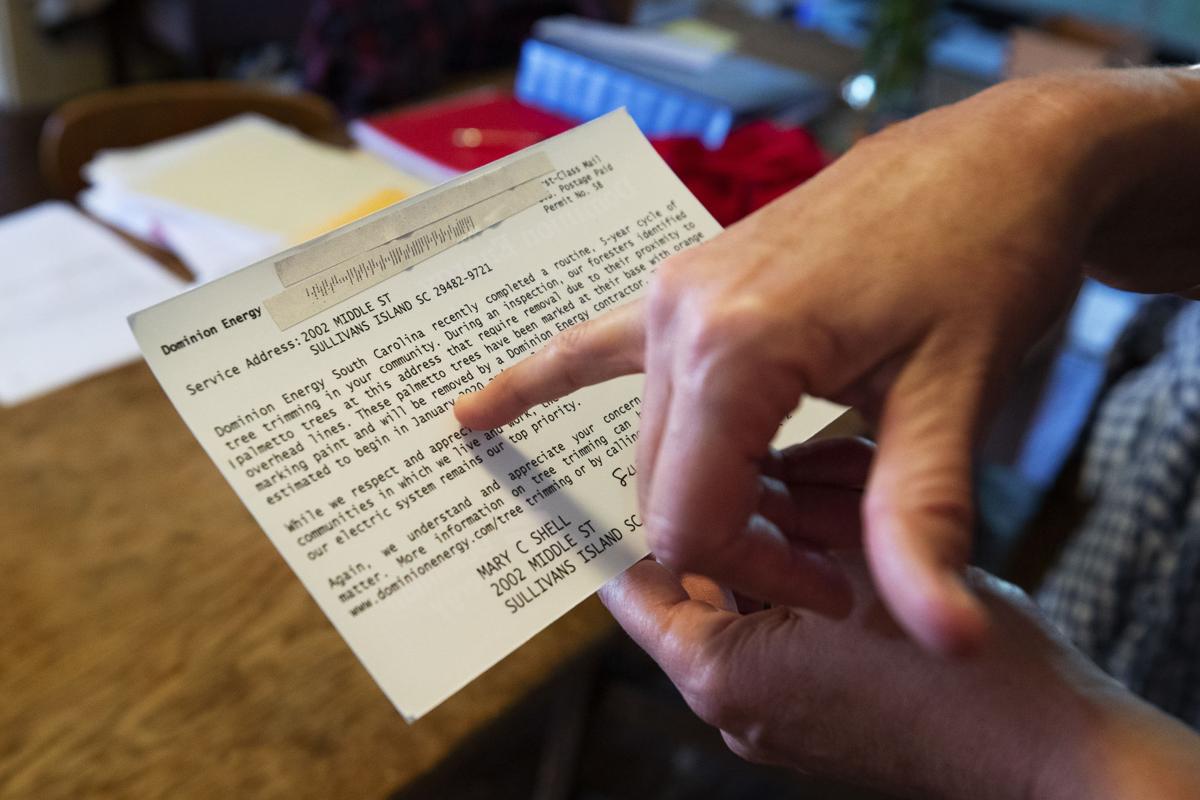 st-Class Mail
Postage Paid
Permit No. 58
Dominion Energy
Service Address: 2002 MIDDLE ST
SULLIVANS ISLAND SC 29482-9721
Dominion Energy South Carolina recently completed a routine, 5-year cycle of
tree trimming in your community. During an inspection, our foresters identified
palmetto trees at this address that require removal due to their proximity to
overhead lines. These palmetto trees have been marked at their base with orange
marking paint and will be removed by a Dominion Energy contractor.
estimated to begin in January 2020
While we respect and apprec
communities in which we live and work, the
our electric system remains our top priority.
Again, we understand and appreciate your concern
matter. More information on tree trimming can b
www.dominionenergy.com/tree trimming or by callin
MARY C SHELL
2002 MIDDLE ST
SULLIVANS ISLAND SC